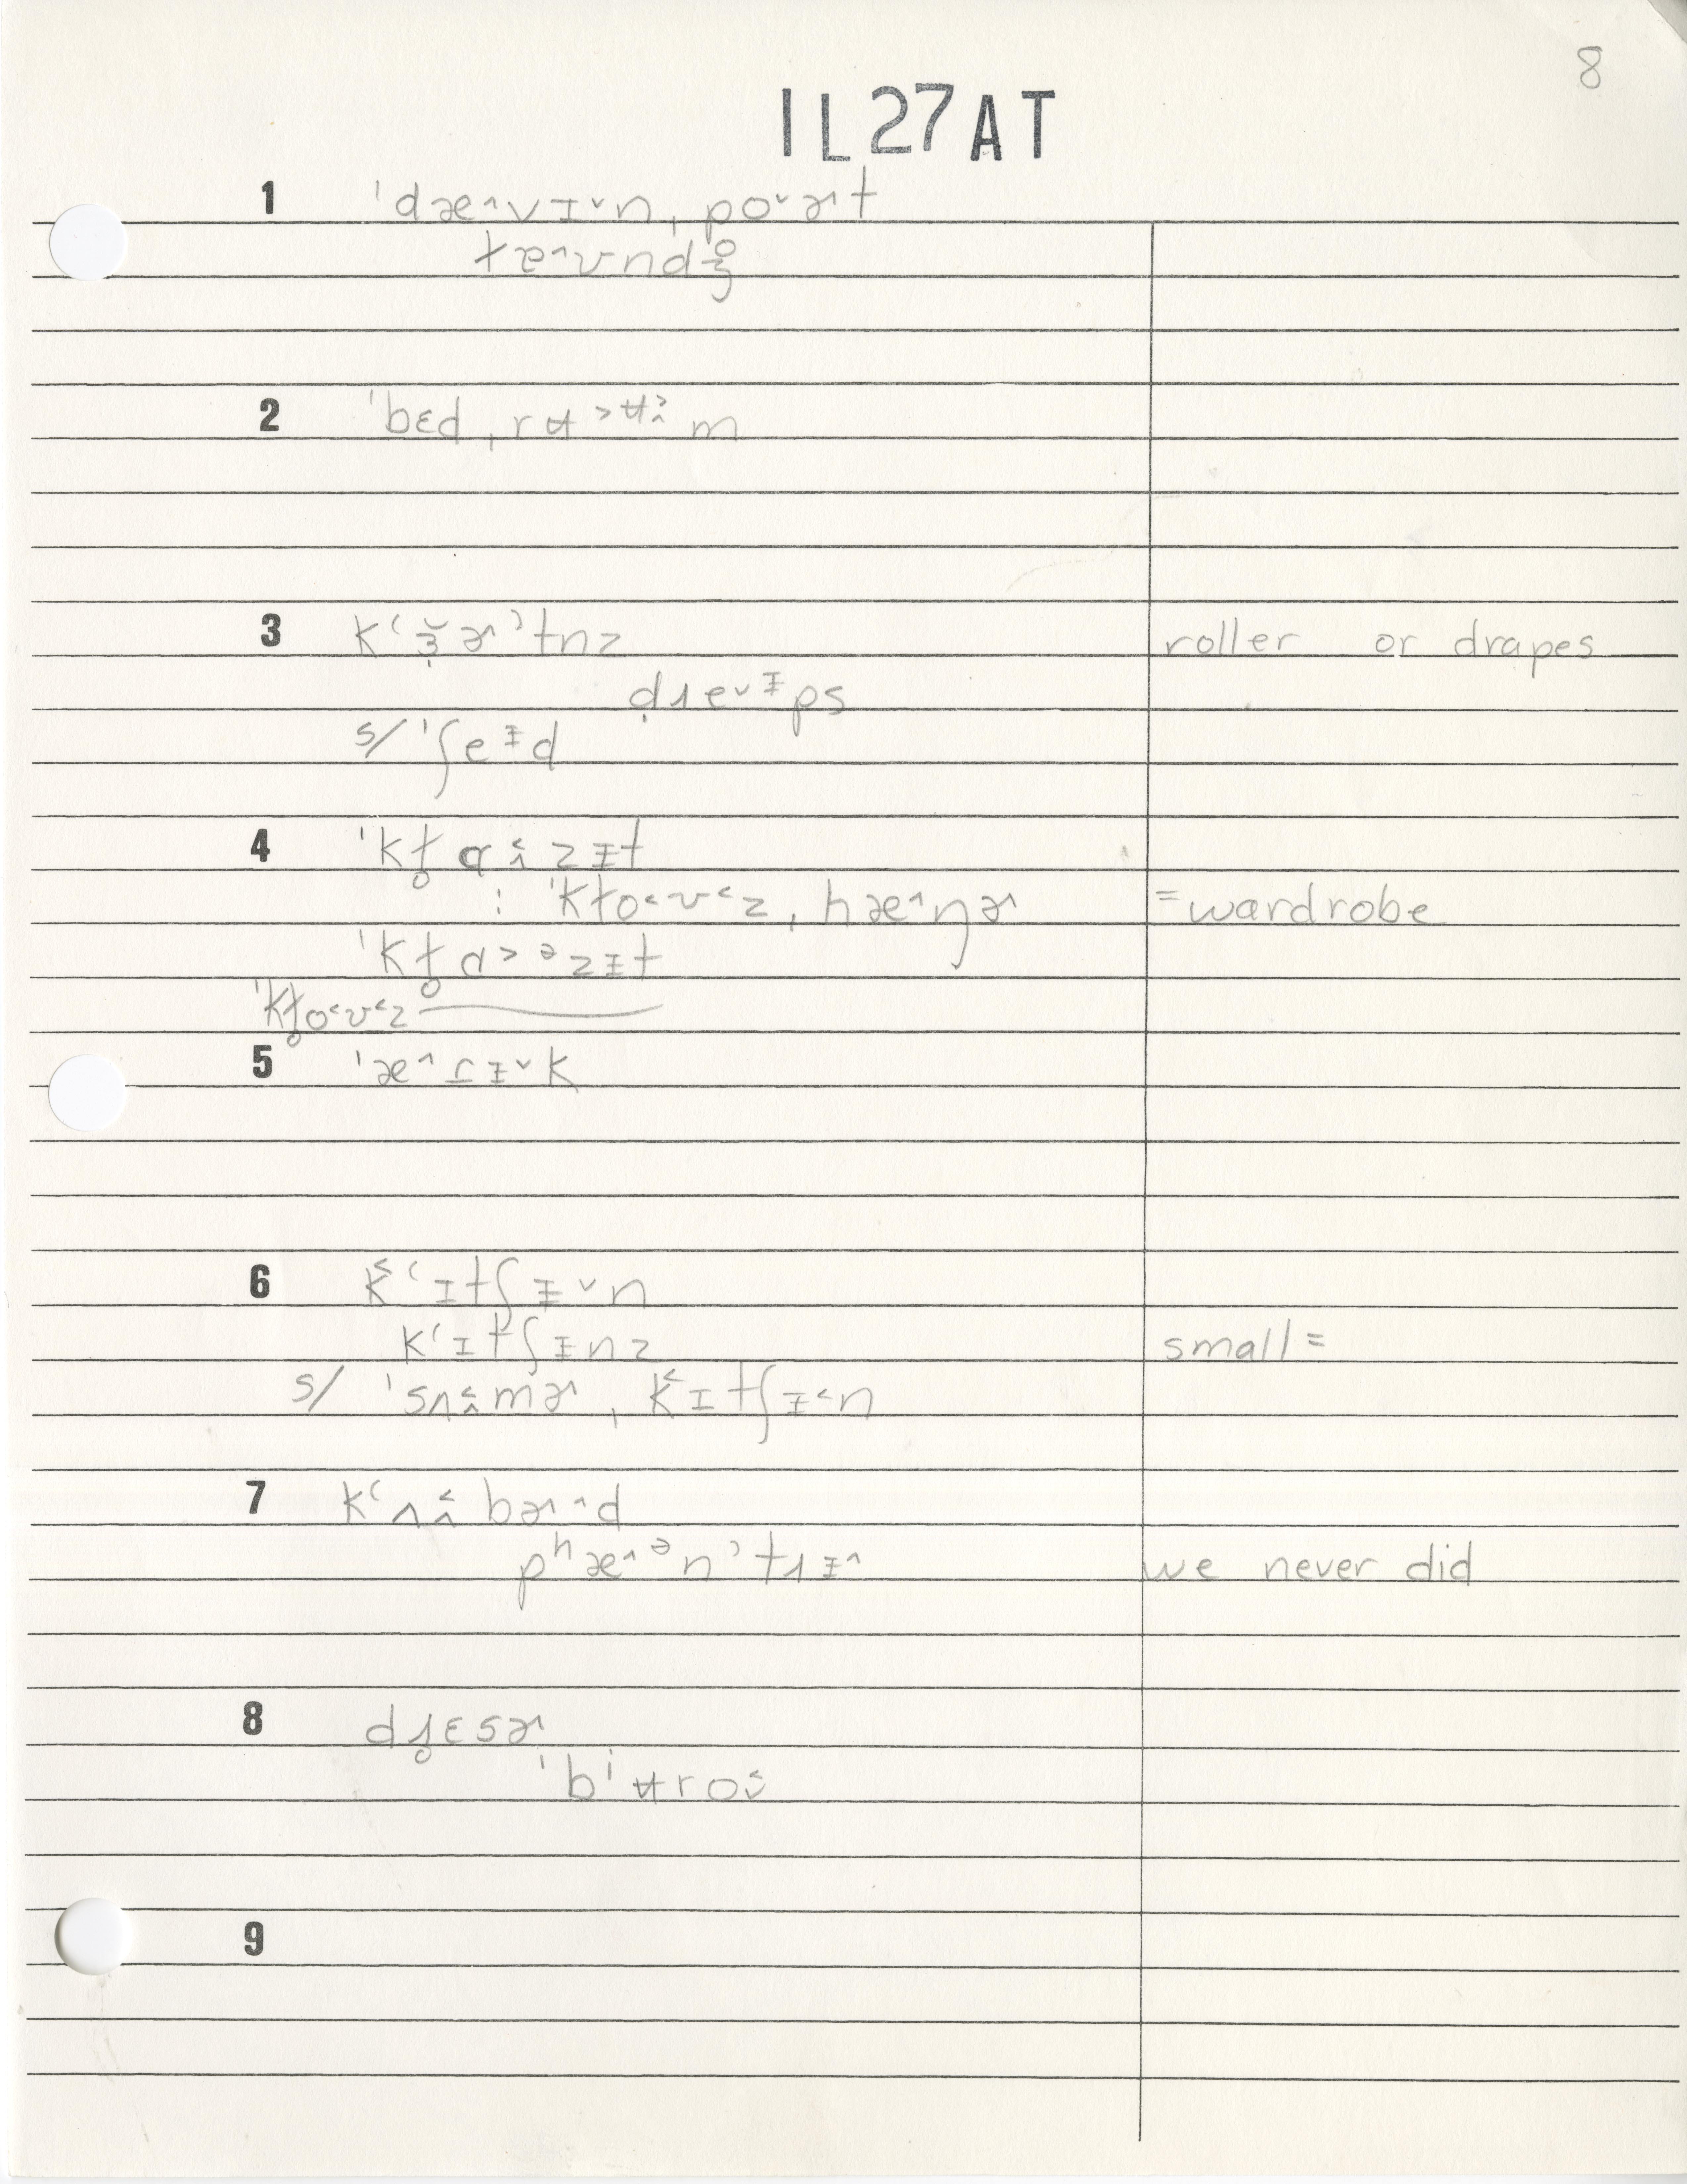 8
IL27AT
1 ˈdæ˄vɪ˅n, po˅ɚt
læ˄ʊndʒ̊
2 ˈbɛd ˌrʉ˃ʉ m
3 kʻɜ̣̆ɚʾtnz roller or drapes
dɹ̣e˅ᵻps
s/ ˈʃeᵻd
4 ˈkɫ̥ɑzɪt
: ˈkɫo˂ʊ˂z ˌhæ˄ŋɚ =wardrobe
ˈkɫ̥ɑ˃ᵊzᵻt
ˈkɫ̥o˂ʊ˂z
5 ˈæ˄ɾᵻ˅k
6 kʻɪtʃᵻ˅n
kʻɪtʃᵻnz small =
s/ ˈsʌmɚ ˌkɪtʃᵻ˂n
7 kʻʌbɚ˄d
pʰæ˄ᵊnʾtɹᵻ˄ we never did
8 dɹ̥ɛsɚ
ˈbʲʉro
9